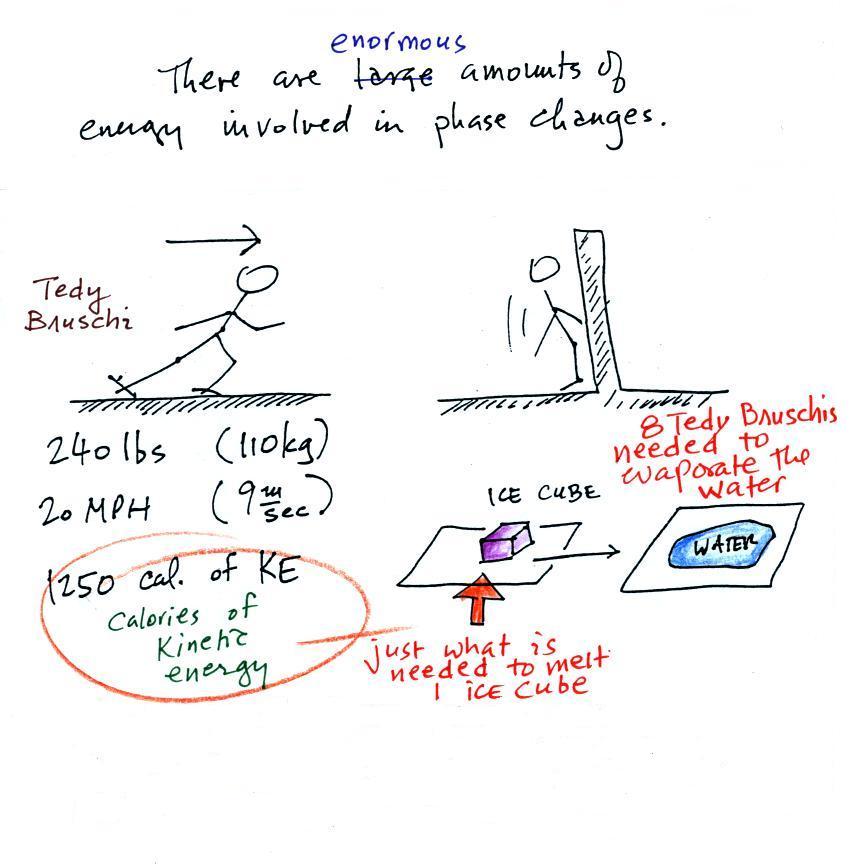 enormous
There are large amounts of
energy involved in phase changes.
Tedy
Bruschi
240 lbs (110kg)
20 MPH (9 m/sec)
1250 cal. of KE
Calories of
Kinetic
energy
8 Tedy Bruschis
needed to
evaporate the
water
ICE CUBE
WATER
just what is
needed to melt
1 ice cube